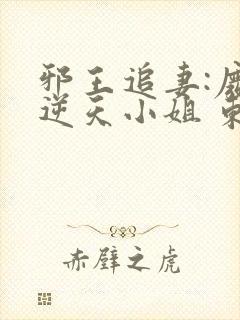 邪王追妻:废
逆天小姐
赤壁之虎